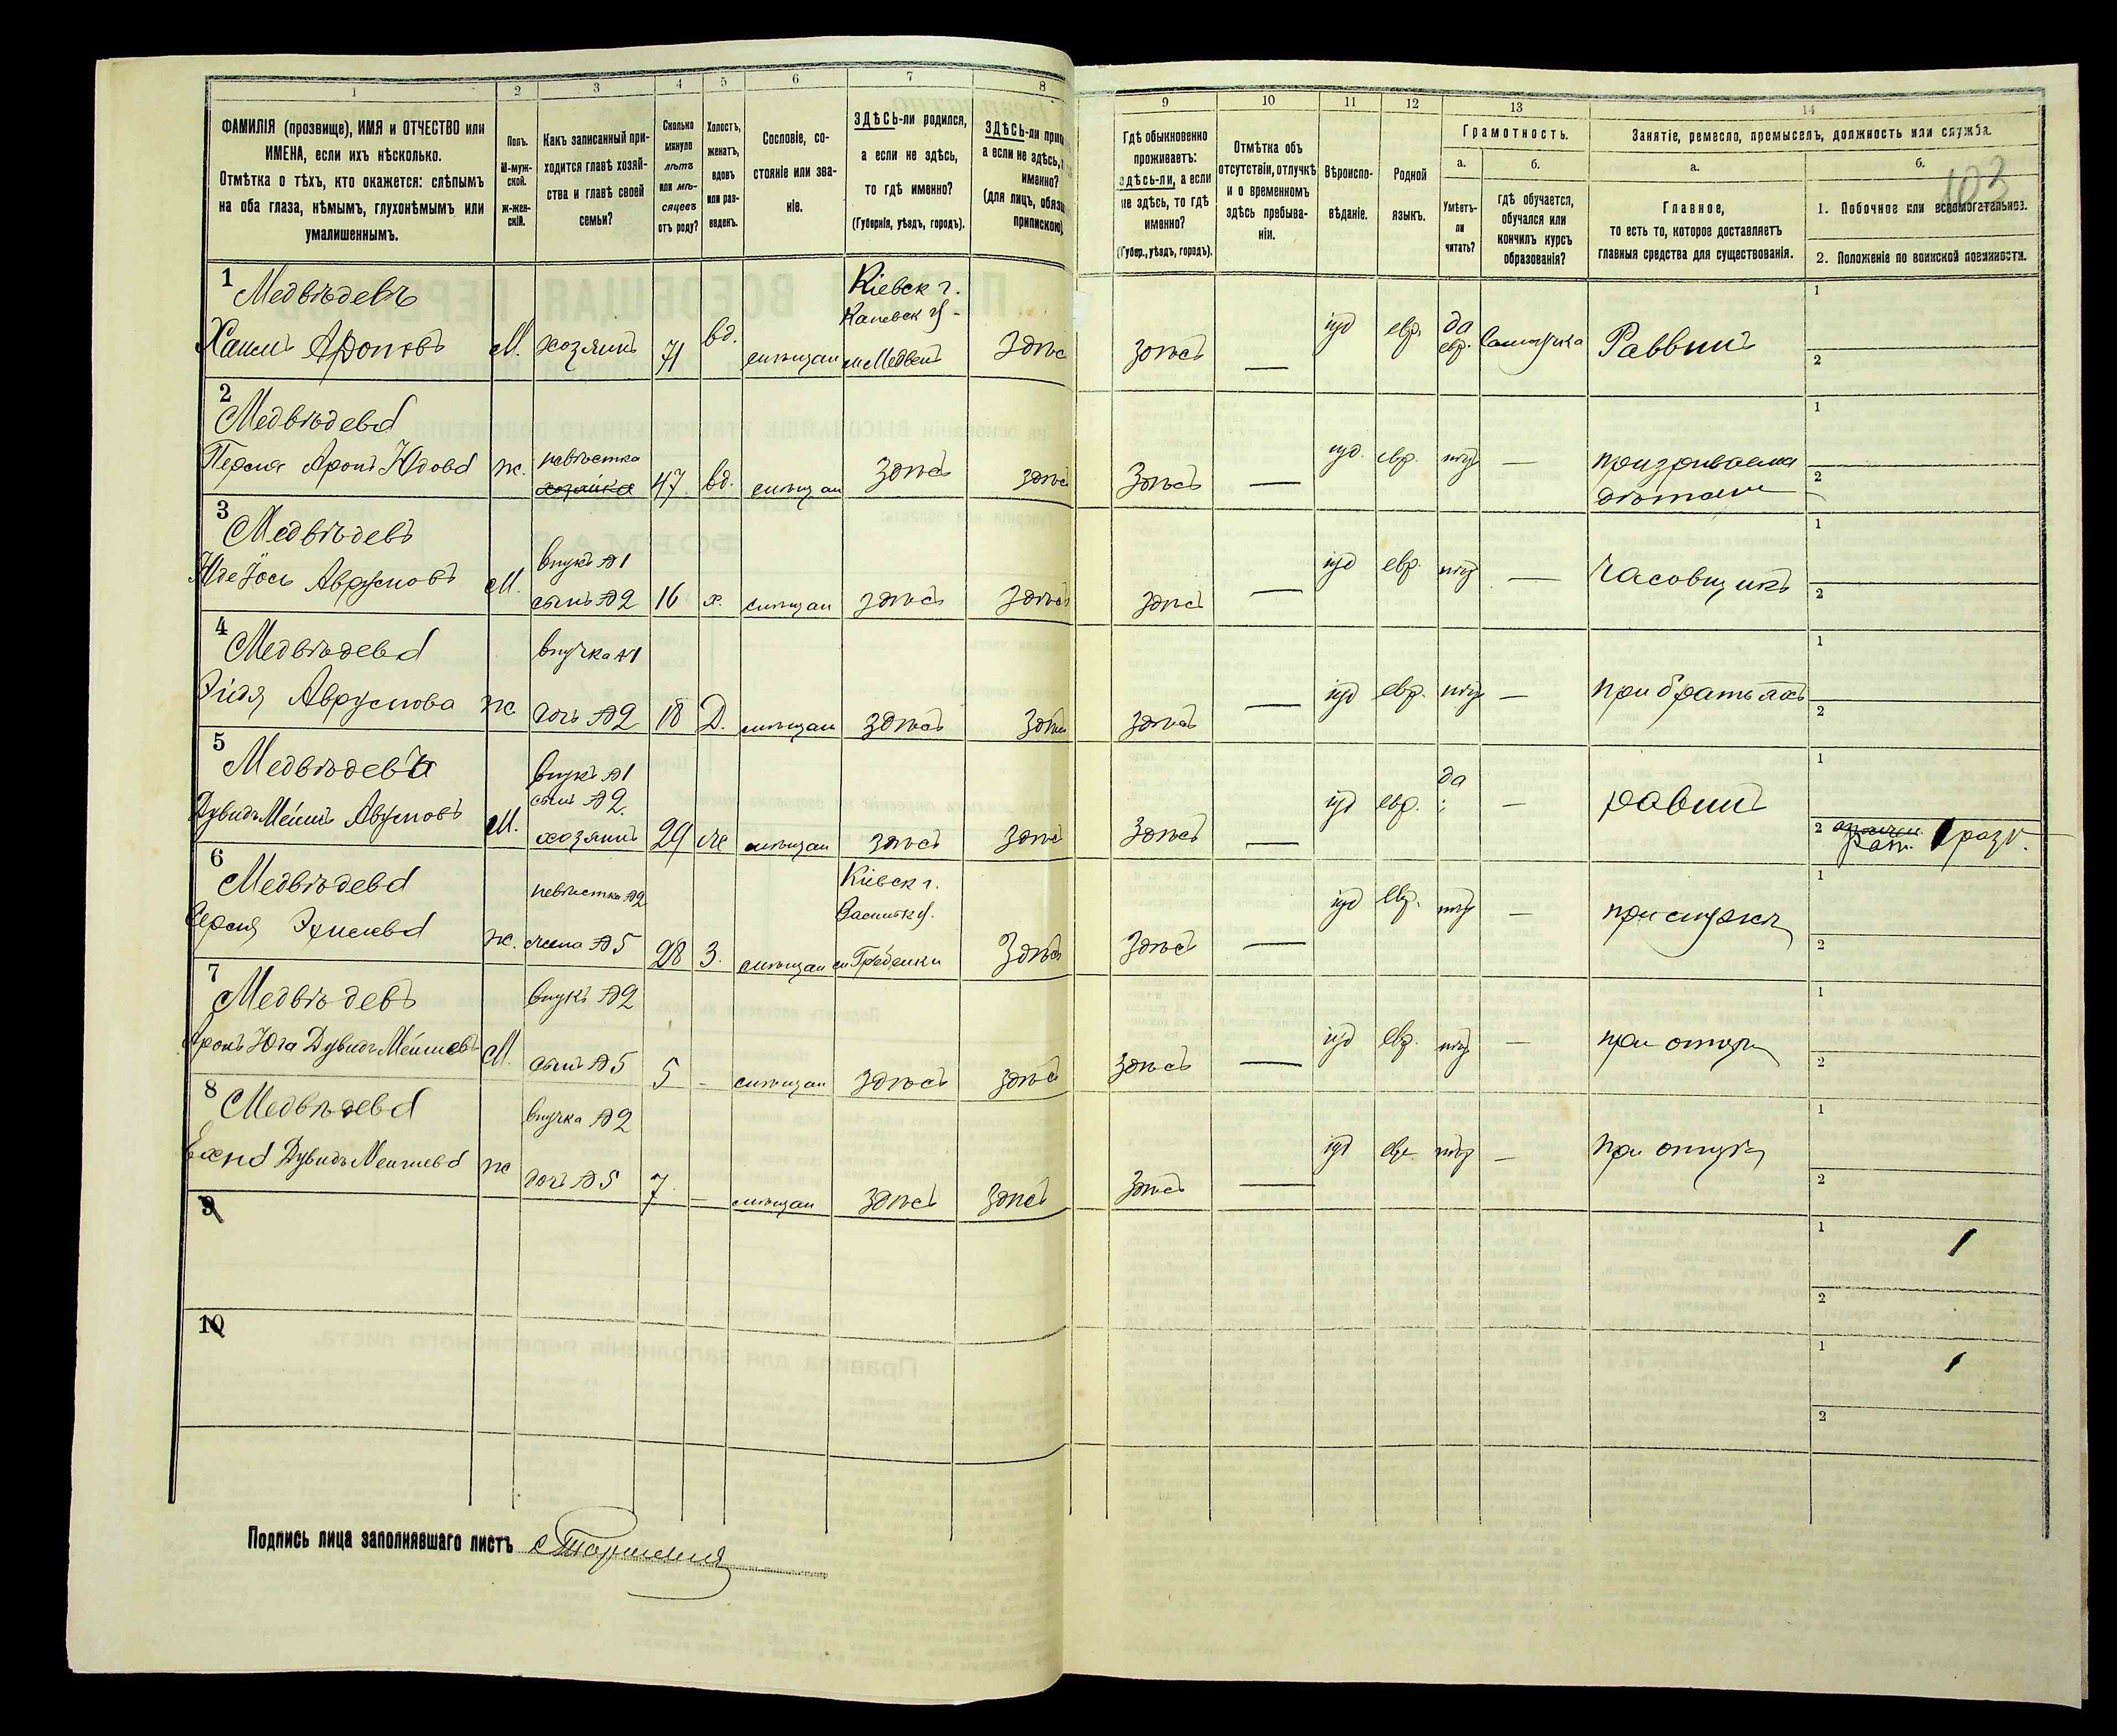 1
2
3
4
5
6
7
8
ФАМИЛІЯ (прозвище), ИМЯ и ОТЧЕСТВО или
ИМЕНА, если ихъ нѣсколько.
Отмѣтка о тѣхъ, кто окажется: слѣпымъ
на оба глаза, нѣмымъ, глухонѣмымъ или
умалишеннымъ.
Полъ.
М-муж-
ской.
ж-жен-
скій.
Какъ записанный при-
ходится главѣ хозяй-
ства и главѣ своей
семьи?
Сколько
минуло
лѣтъ
или мѣ-
сяцевъ
отъ роду?
Холостъ,
женатъ,
вдовъ
или раз-
веденъ.
Сословіе, со-
стояніе или зва-
ніе.
ЗДѢСЬ-ли родился,
а если не здѣсь,
то гдѣ именно?
(Губернія, уѣздъ, городъ).
ЗДѢСЬ-ли
а если не здѣсь,
именно?
(для лицъ,
припискою)
9
10
11
12
13
14
Гдѣ обыкновенно
проживаетъ:
здѣсь-ли, а если
не здѣсь, то гдѣ
именно?
(Губер., уѣздъ, городъ).
Отмѣтка объ
отсутствіи, отлучкѣ
и о временномъ
здѣсь пребыва-
ніи.
Вѣроиспо-
вѣданіе.
Родной
языкъ.
Грамотность.
а.
Умѣетъ-
ли
читать?
б.
гдѣ обучается,
обучался или
кончилъ курсъ
образованія?
Занятіе, ремесло, промыселъ, должность или служба.
а.
Главное,
то есть то, которое доставляетъ
главныя средства для существованія.
б.
103
1. Побочное или вспомогательное.
2. Положеніе по воинской повинности.
1
Медвѣдевъ
Хаимъ Ароновъ
М.
хозяинъ
71
вд.
мѣщан
Кіевск г.
Каневск у
м Медвен
здѣсь
здѣсь
—
іуд
евр.
да
евр.
Самоучка
Раввинъ
1
2
2
Медвѣдева
Перля Аронъ Юдова
ж.
невѣстка
хозяйка
47
вд.
мѣщан
здѣсь
здѣсь
здѣсь
—
іуд.
евр.
нѣт
—
призриваема
дѣтьми
1
2
3
Медвѣдевъ
Аврумовъ
М.
внукъ №1
сынъ №2
16
х.
мѣщан
здѣсь
здѣсь
здѣсь
—
іуд
евр.
нѣт
—
Часовщикъ
1
2
4
Медвѣдева
Аврумова
ж
внучка №1
дочь №2
18
Д.
мѣщан
здѣсь
здѣсь
здѣсь
—
іуд
евр.
нѣт
—
при братьяхъ
1
2
5
Медвѣдевъ
Дувидъ Меишъ Аврумовъ
М.
внукъ №1
сынъ №2.
хозяинъ
29
же
мѣщан
здѣсь
здѣсь
здѣсь
—
іуд
евр.
да
—
равинъ
1
2
1 разр.
6
Медвѣдева
ж.
невѣстка №2
жена №5
28
З.
мѣщан
Кіевск г.
Васильк у.
м Гребенки
здѣсь
здѣсь
—
іуд
евр.
нѣт
—
при мужѣ
1
2
7
Медвѣдевъ
Аронъ Юда Дувидъ Меишевъ
М.
внукъ №2
сынъ №5
5
—
мѣщан
здѣсь
здѣсь
здѣсь
—
іуд
евр.
нѣт
—
при отцѣ
1
2
8
Медвѣдева
Дувидъ Меишева
ж
внучка №2
дочь №5
7
—
мѣщан
здѣсь
здѣсь
здѣсь
—
іуд
евр
нѣт
—
при отцѣ
1
2
9
1
2
10
1
2
Подпись лица заполнявшаго листъ